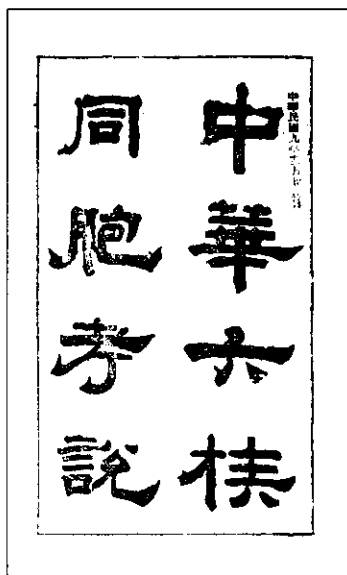 中華民國九年
中華六族
同胞考說